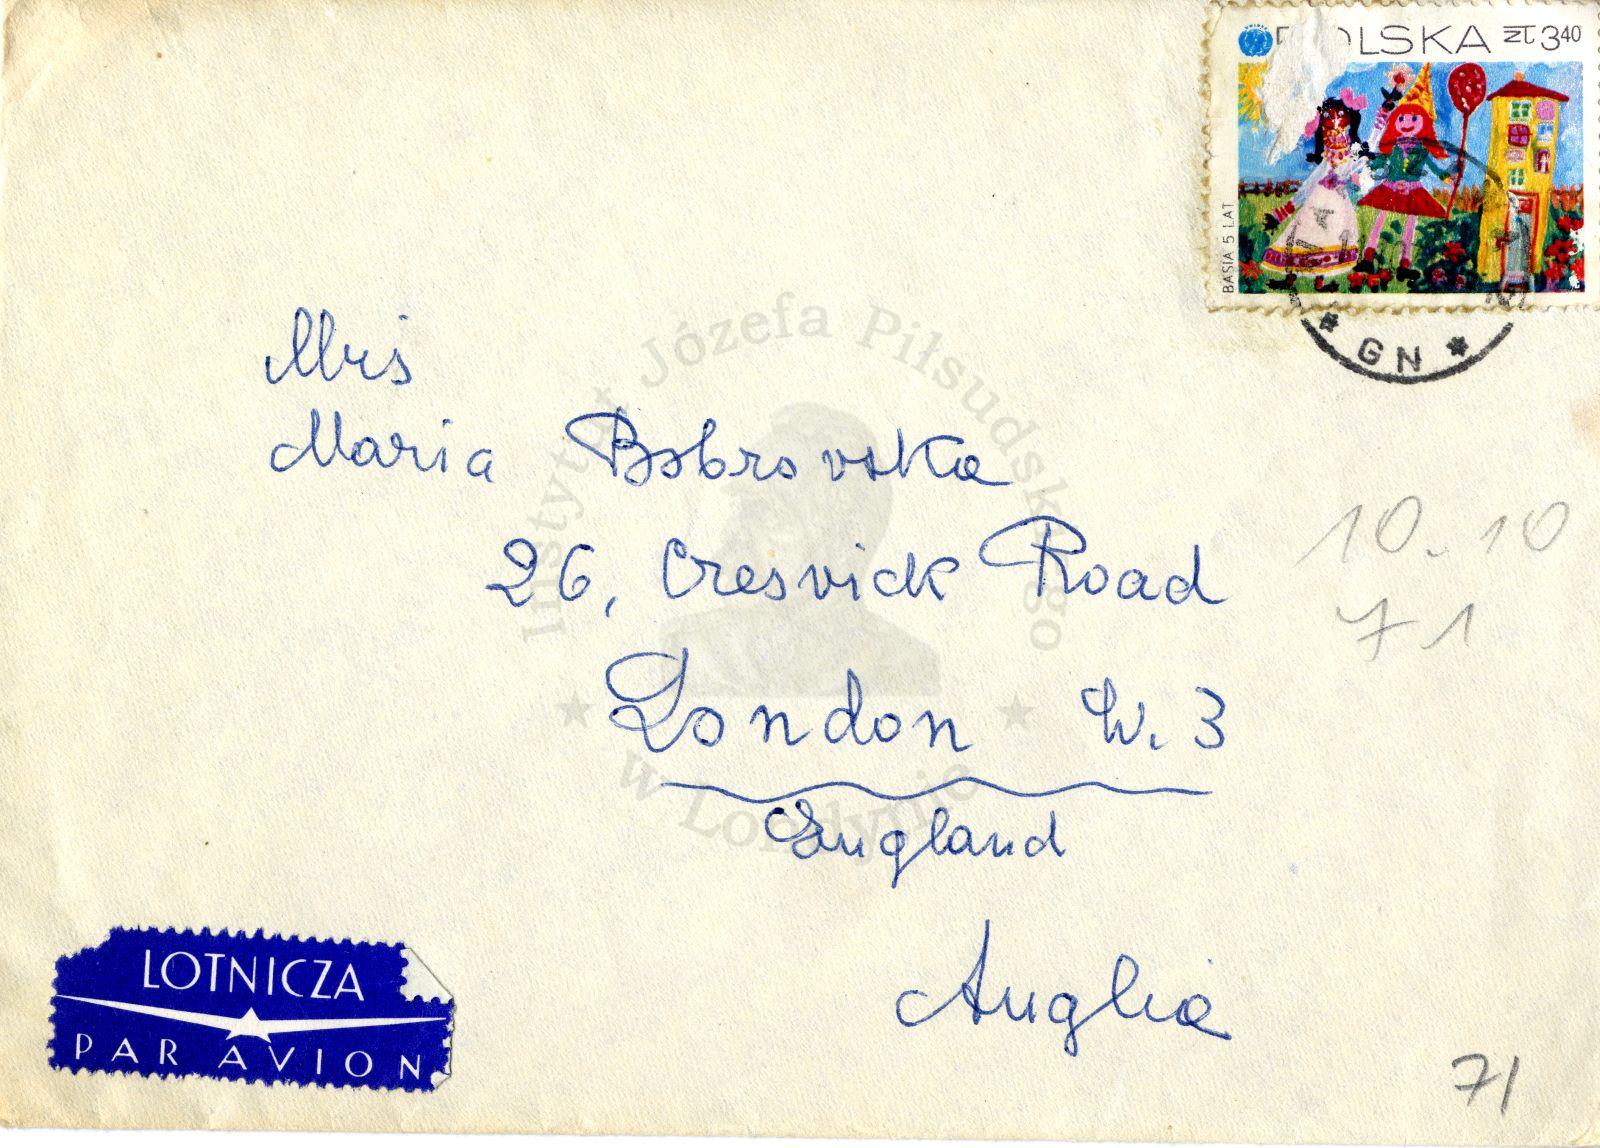 POLSKA ZŁ 3 40
BASIA 5 LAT
* GN *
Mris
Maria Bobrovska
26, Cresvick Road
London W. 3
England
Anglia
10.10
71
LOTNICZA
PAR AVION
71
Instytut Józefa Piłsudskiego
w Londynie